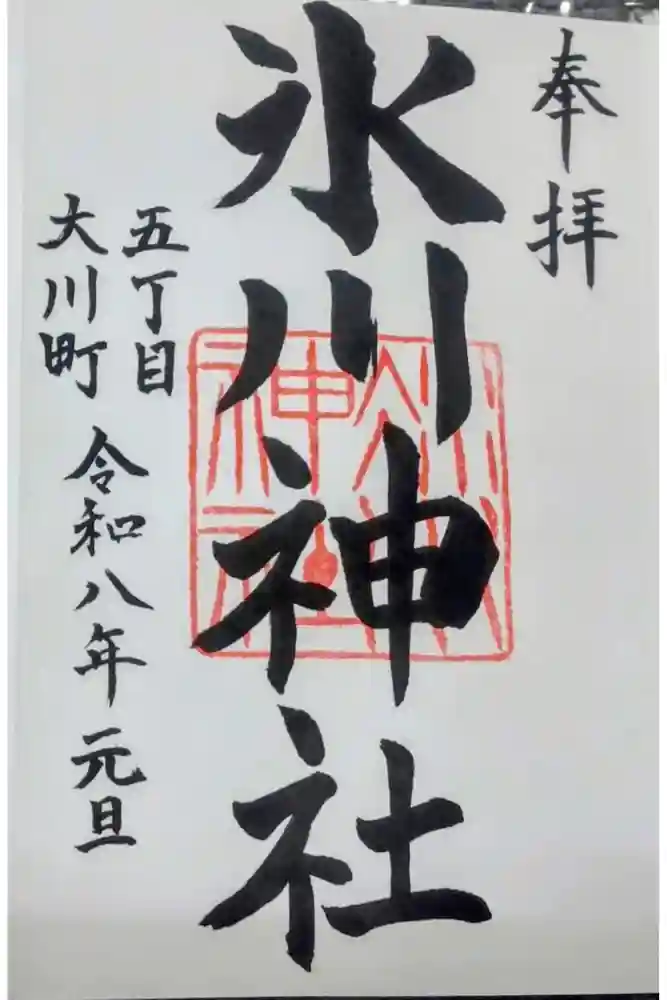 奉拝
氷川神社
氷川神社
五丁目
大川町
令和八年 元旦